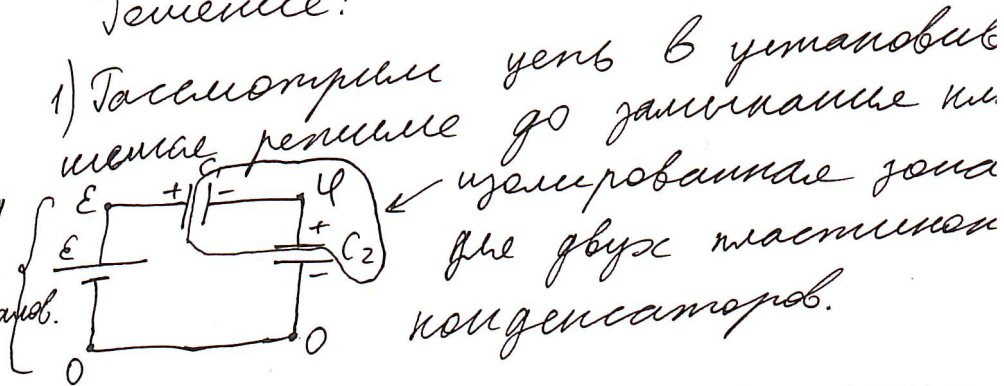 Решение:
1) Рассмотрим цепь в установив
шемся режиме до замыкания кл.
изолированная зона
для двух пластинок
конденсаторов.
ε
+
-
φ
ε
+
C2
-
0
0